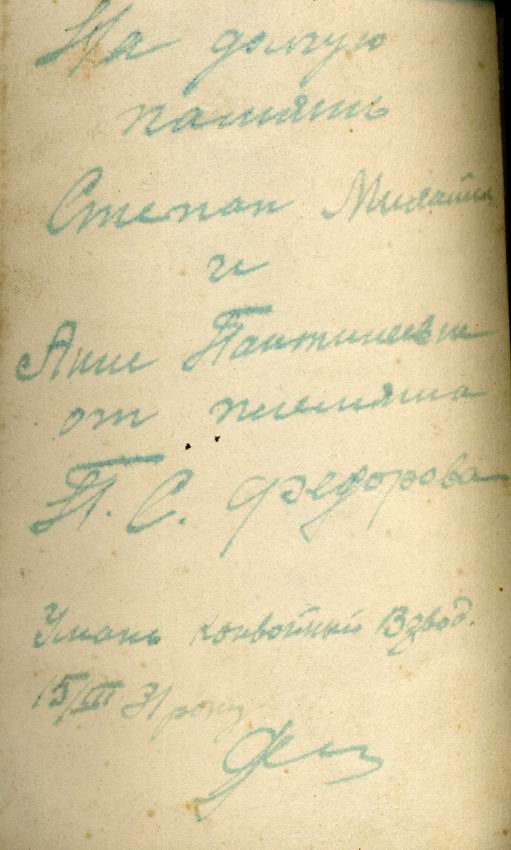 На долгую
память
Степан Михайл
и
Анне Пантилеевне
от племянника
П. С. Федорова
Умань конвойный Взвод.
15/III 31 року